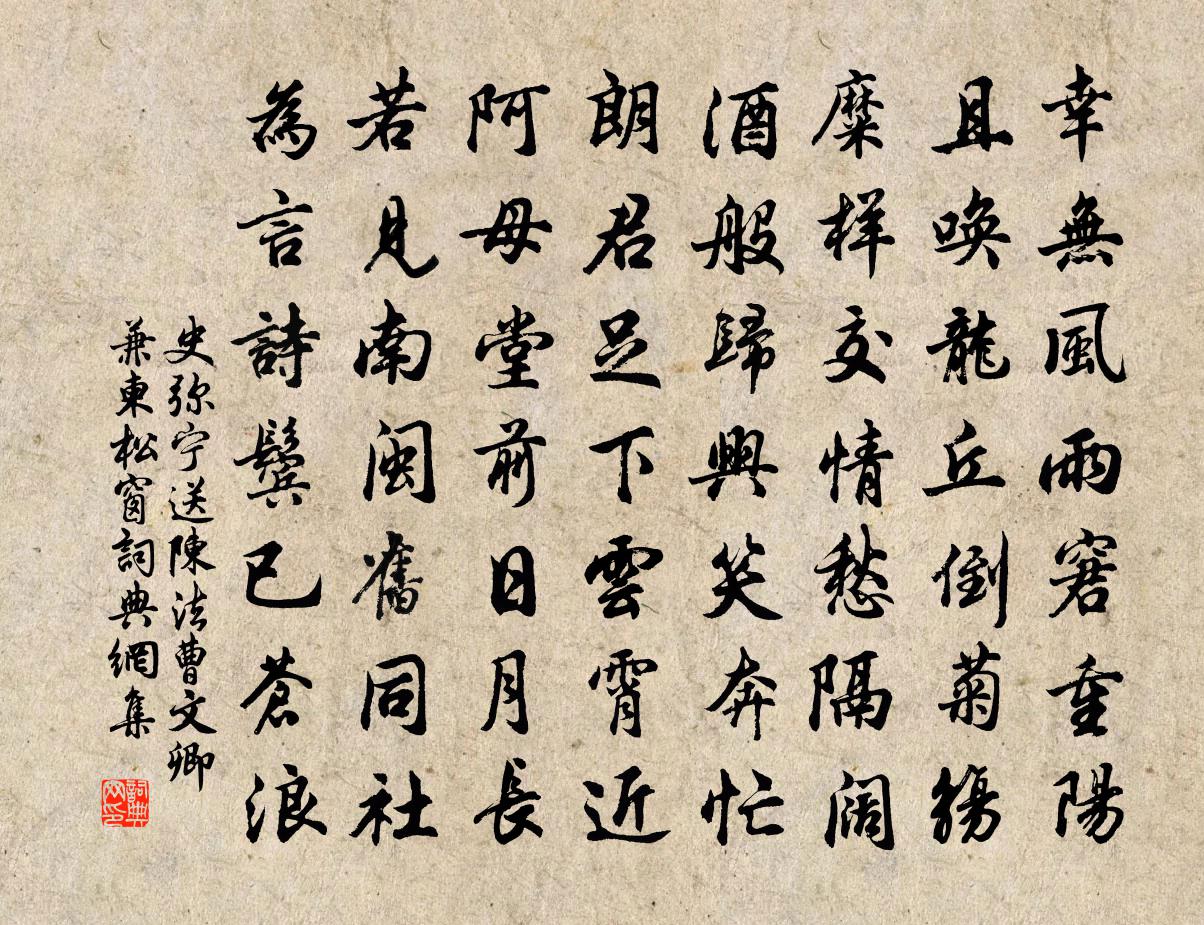 幸無風雨窘重陽
且喚龍丘倒菊觴
糜樣交情愁隔闊
酒般歸興笑奔忙
朗君足下雲霄近
阿母堂前日月長
若見南閩舊同社
為言詩鬢已蒼浪
史弥宁送陳法曹文卿
兼東松窗詞典網集
詞典網印